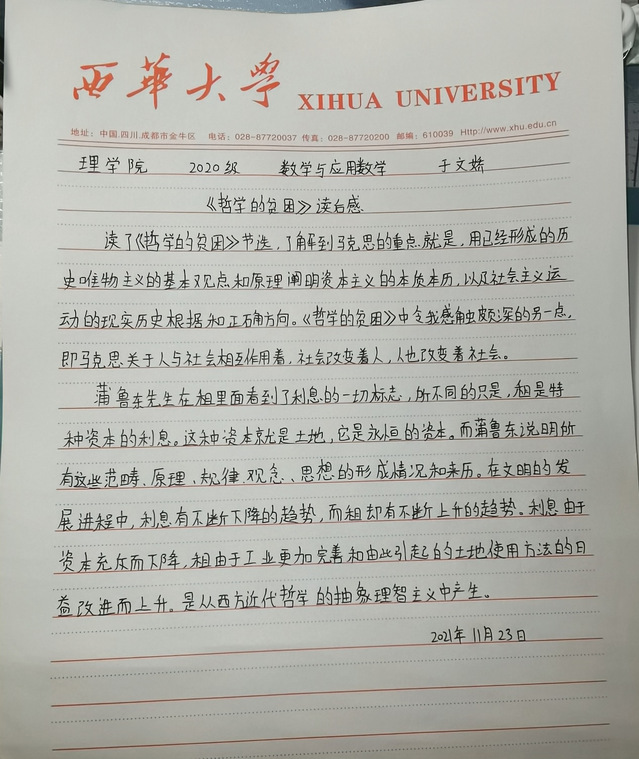 西华大学 XIHUA UNIVERSITY
地址：中国.四川.成都市金牛区 电话：028-87720037 传真：028-87720200 邮编：610039 Http://www.xhu.edu.cn
理学院 2020级 数学与应用数学 于文娇
《哲学的贫困》读后感
读了《哲学的贫困》节选，了解到马克思的重点就是，用已经形成的历
史唯物主义的基本观点和原理阐明资本主义的本质本历，以及社会主义运
动的现实历史根据和正确方向。《哲学的贫困》中令我感触颇深的另一点，
即马克思关于人与社会相互作用着，社会改变着人，人也改变着社会。
蒲鲁东先生在租里面看到了利息的一切标志，所不同的只是，租是特
种资本的利息。这种资本就是土地，它是永恒的资本。而蒲鲁东说明所
有这些范畴、原理、规律、观念、思想的形成情况和来历。在文明的发
展进程中，利息有不断下降的趋势，而租却有不断上升的趋势。利息由于
资本充斥而下降，租由于工业更加完善和由此引起的土地使用方法的日
益改进而上升。是从西方近代哲学的抽象理智主义中产生。
2021年11月23日